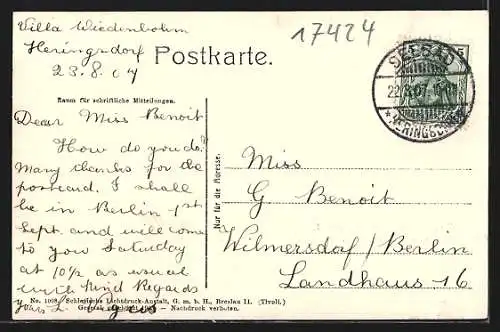 Villa Wiedenbohm
Heringsdorf
23.8.07
17424
Postkarte.
SEEBAD
HERINGSDORF
Raum für schriftliche Mitteilungen.
Nur für die Adresse.
Dear Miss Benoit
How do you do?
Many thanks for the
postcard. I shall
be in Berlin 1st
Sept. and will come
to you Saturday
at 10½ as usual
with Kind Regards
Yours L.
Miss
G Benoit
Wilmersdorf/Berlin
Landhaus 16
No. 1098 Schlesische Lichtdruck-Anstalt, G. m. b. H., Breslau 11. (Tivoli.)
Nachdruck verboten.